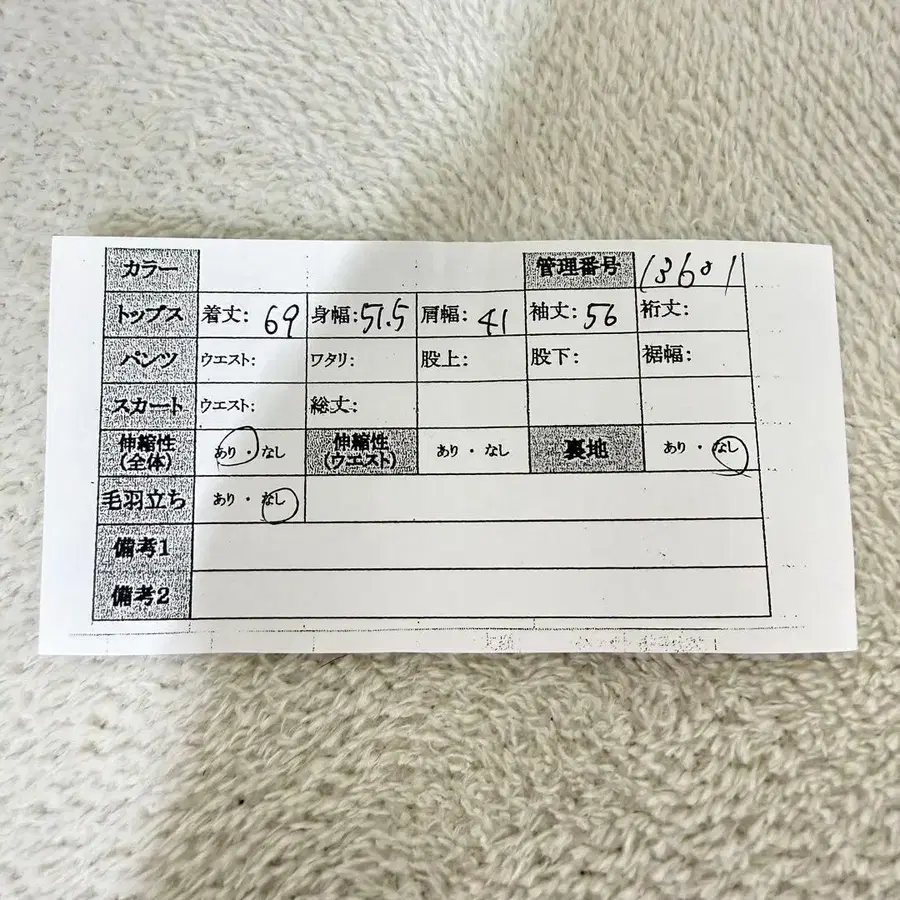 カラー 管理番号 13631
トップス 着丈: 69 身幅: 51.5 肩幅: 41 袖丈: 56 裄丈:
パンツ ウエスト: ワタリ: 股上: 股下: 裾幅:
スカート ウエスト: 総丈:
伸縮性(全体) あり・なし 伸縮性(ウエスト) あり・なし 裏地 あり・なし
毛羽立ち あり・なし
備考1
備考2